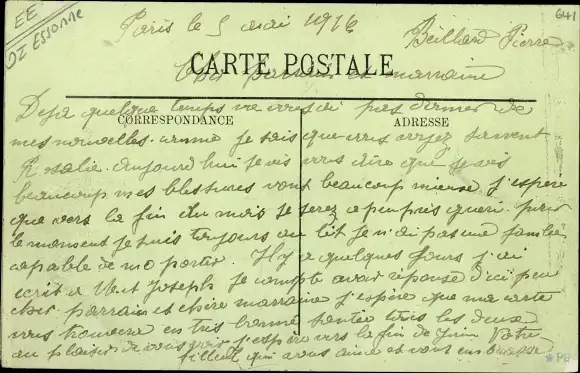 EE
02 ESSONNE
641
Paris le 5 mai 1916
Beillard Pierre
CARTE POSTALE
Cher parrain et marraine
CORRESPONDANCE
ADRESSE
Deja quelque temps ne vous ai pas donner de
mes nouvelles. comme je sais que vous voyez souvent
Rosalie. aujourd hui je vais vous dire que je vais
beaucoup mes blessures vont beaucoup mieux j'espere
que vers la fin du mois je serez a peu pres queri. pour
le moment je suis toujours au lit je n'ai pas une
capable de me porter. Il y a quelques jours j'ai
ecrit a Joseph je compte avoir reponse d'ici peu
cher parrain et chere marraine j'espere que ma carte
vous trouvera en tres bonne santée tous les deux
au plaisir de vous j'espere vers la fin de Juin Votre
filleul qui vous aime et vous embrasse
PB